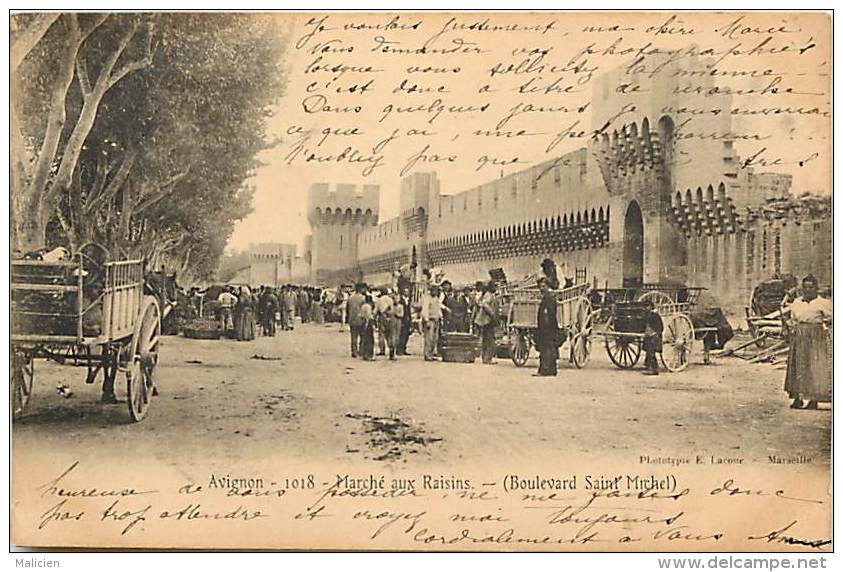 Je voulais justement, ma chère Marie,
Vous demander vos photographies
lorsque vous sollicitez la mienne -
c'est donc à titre de revanche
Dans quelques jours je vous enverrai
ce que j'ai, une
N'oubliez pas que
Phototypie E. Lacour. - Marseille.
Avignon - 1018 - Marché aux Raisins. - (Boulevard Saint Michel)
heureuse de vous posséder, ne me faites donc
pas trop attendre et croyez moi toujours
cordialement à Vous
Malicien
www.delcampe.net